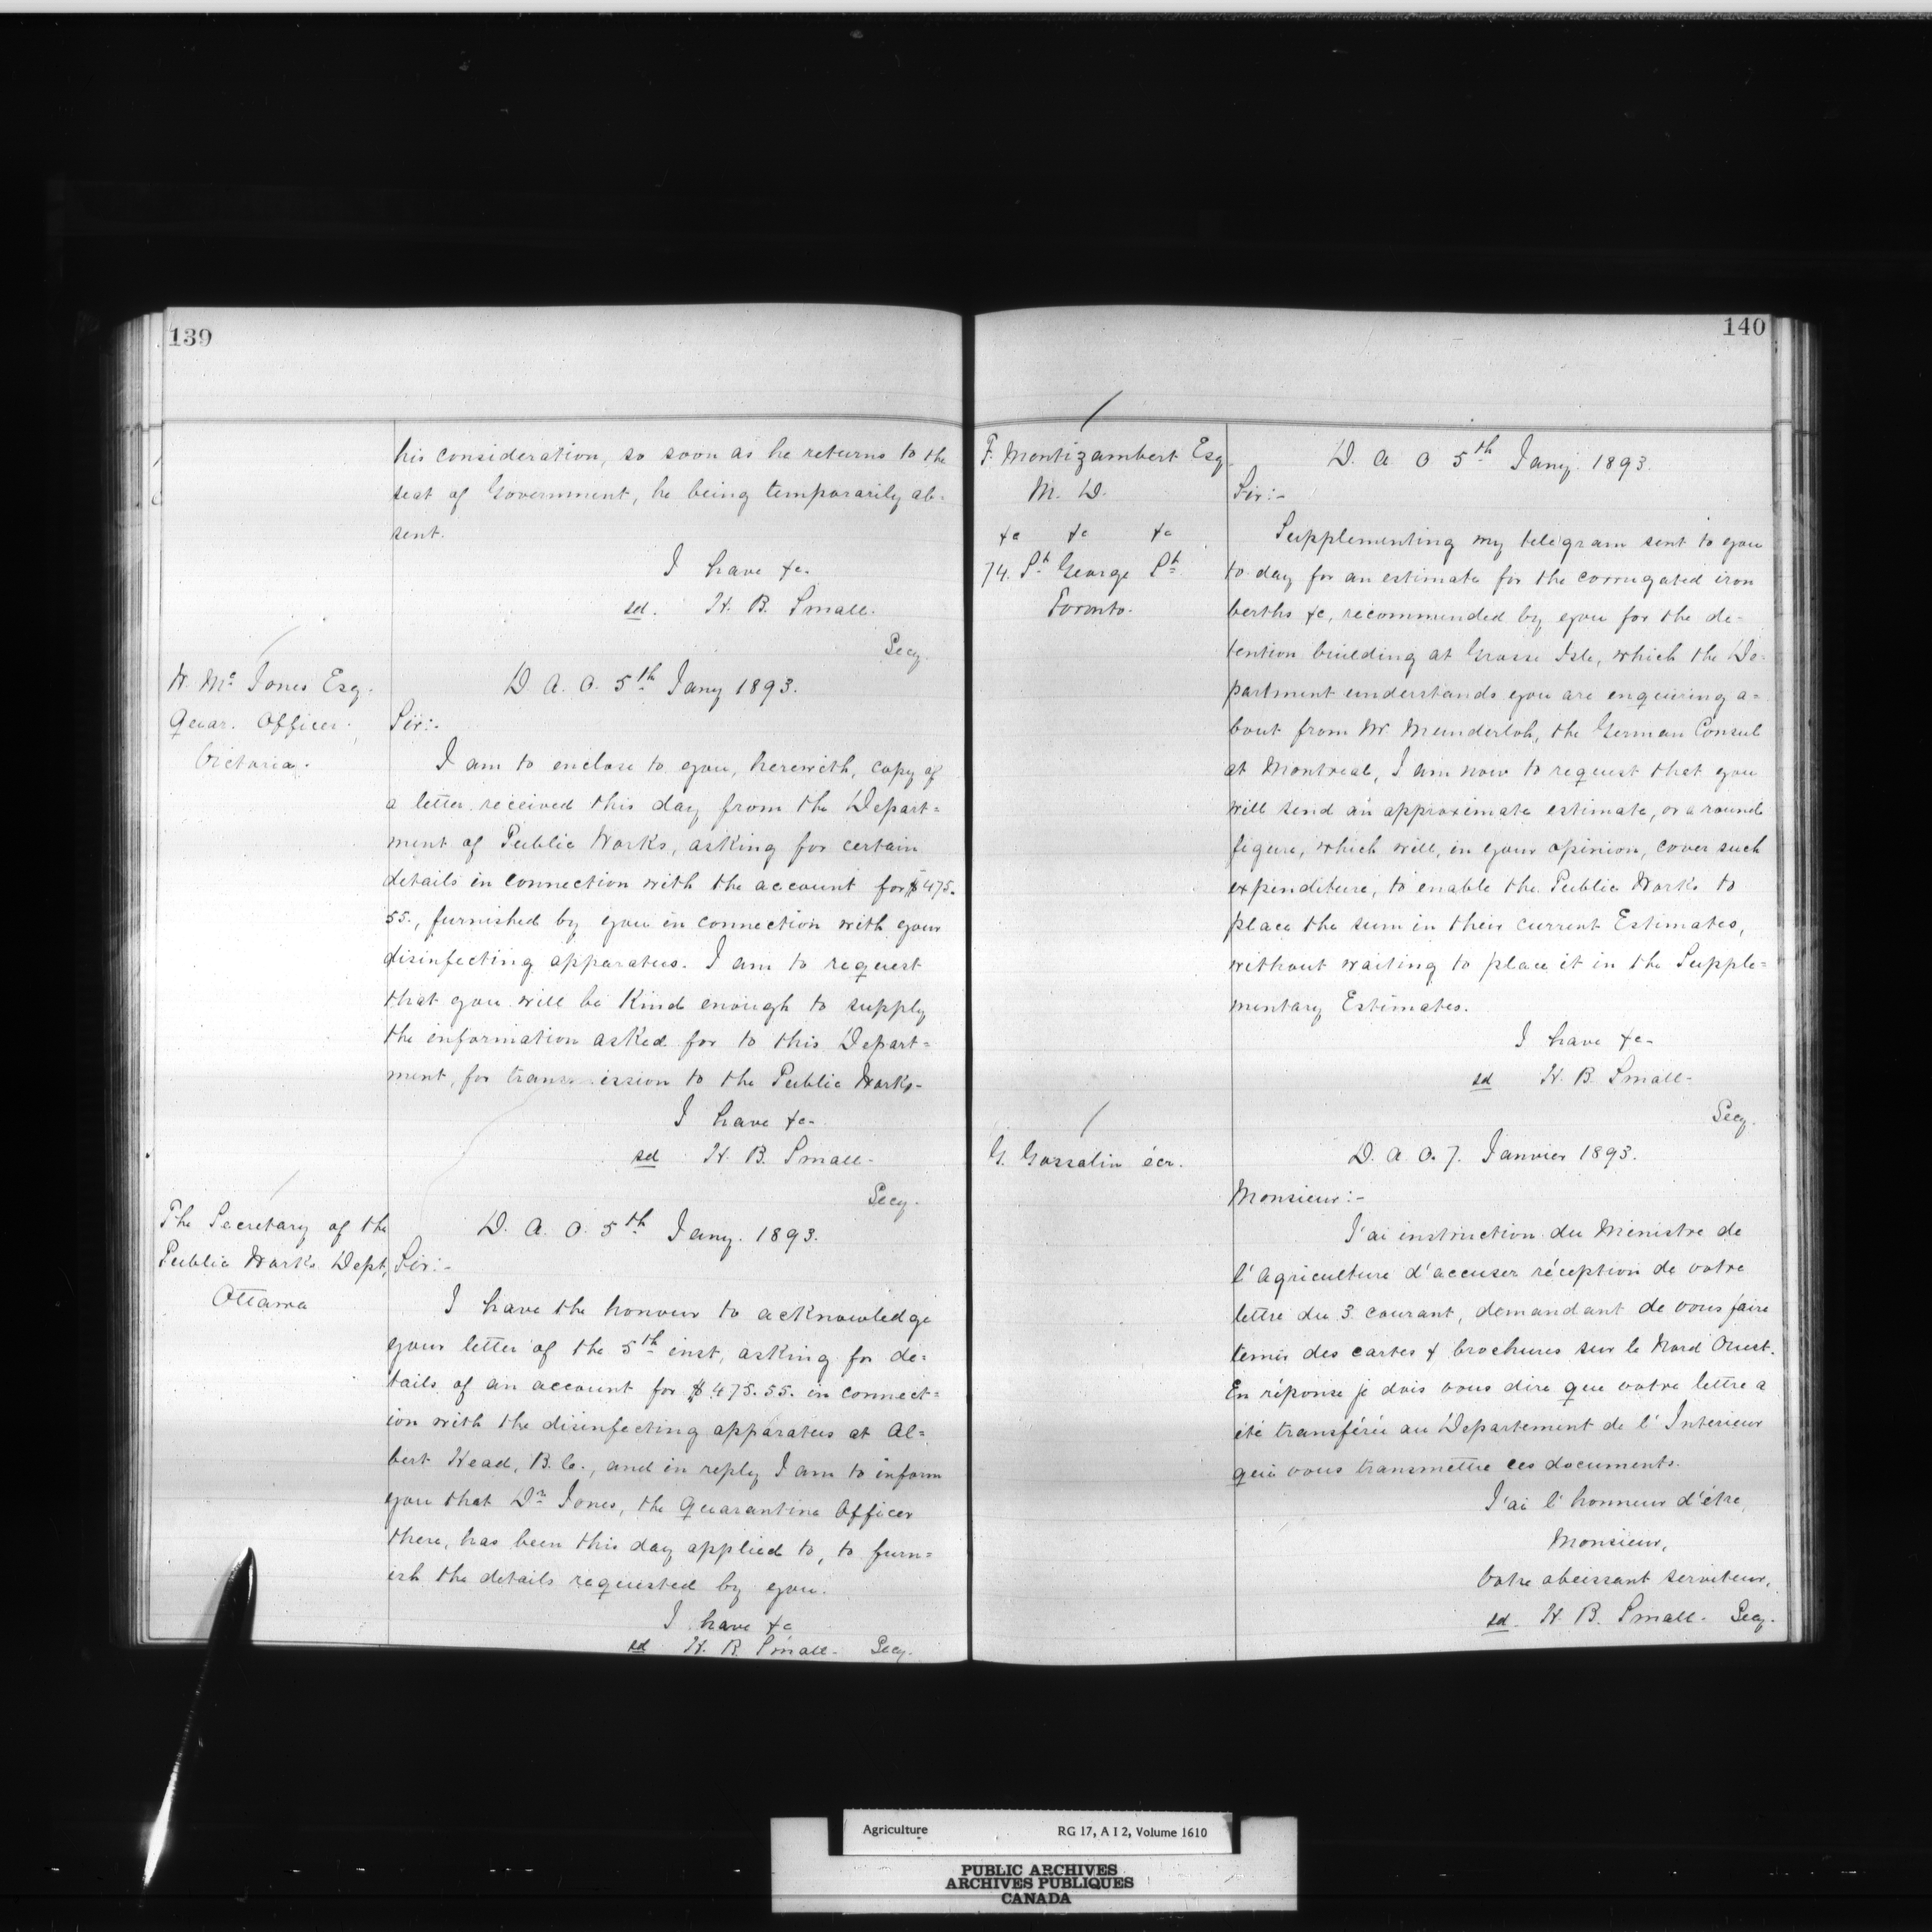 139
his consideration, so soon as he returns to the
seat of Government, he being temporarily ab=
sent.
I have &c.
sd. H. B. Small.
Secy.
W. Mc Jones Esq.
Quar. Officer.
Victoria.
D. A. O. 5th Jany 1893.
Sir:-
I am to enclose to you, herewith, copy of
a letter received this day from the Depart=
ment of Public Works, asking for certain
details in connection with the account for $475.
55., furnished by you in connection with your
disinfecting apparatus. I am to request
that you will be kind enough to supply
the information asked for to this Depart=
ment, for transmission to the Public Works-
I have &c-
sd H. B. Small-
Secy.
The Secretary of the
Public Works Dept,
Ottawa
D. A. O. 5th Jany. 1893.
Sir:-
I have the honour to acknowledge
your letter of the 5th inst, asking for de=
tails of an account for $475.55. in connect=
ion with the disinfecting apparatus at Al=
bert Head, B.C., and in reply I am to inform
you that Dr Jones, the Quarantine Officer
there, has been this day applied to, to furn=
ish the details requested by you.
I have &c
sd H. B. Small- Secy.
140
F. Montizambert Esq.
M. D.
&c &c &c
74. St George St
Toronto.
D. A O 5th Jany. 1893.
Sir:-
Supplementing my telegram sent to you
to day for an estimate for the corrugated iron
berths &c, recommended by you for the de-
tention building at Grosse Isle, which the De-
partment understands you are enquiring a=
bout from Mr Munderloh, the German Consul
at Montreal, I am now to request that you
will send an approximate estimate, or a round
figure, which will, in your opinion, cover such
expenditure, to enable the Public Works to
place the sum in their current Estimates,
without waiting to place it in the Supple=
mentary Estimates.
I have &c-
sd H. B. Small-
Secy.
G. Gosselin écr.
D. A O. 7. Janvier 1893.
Monsieur:-
J'ai instruction du Ministre de
l'Agriculture d'accuser réception de votre
lettre du 3 courant, demandant de vous faire
tenir des cartes & brochures sur le Nord Ouest.
En réponse je dois vous dire que votre lettre a
été transférée au Département de l'Intérieur
qui vous transmettre ces documents.
J'ai l'honneur d'être,
Monsieur,
Votre obeissant serviteur,
sd. H. B. Small- Secy.
Agriculture RG 17, A I 2, Volume 1610
PUBLIC ARCHIVES
ARCHIVES PUBLIQUES
CANADA